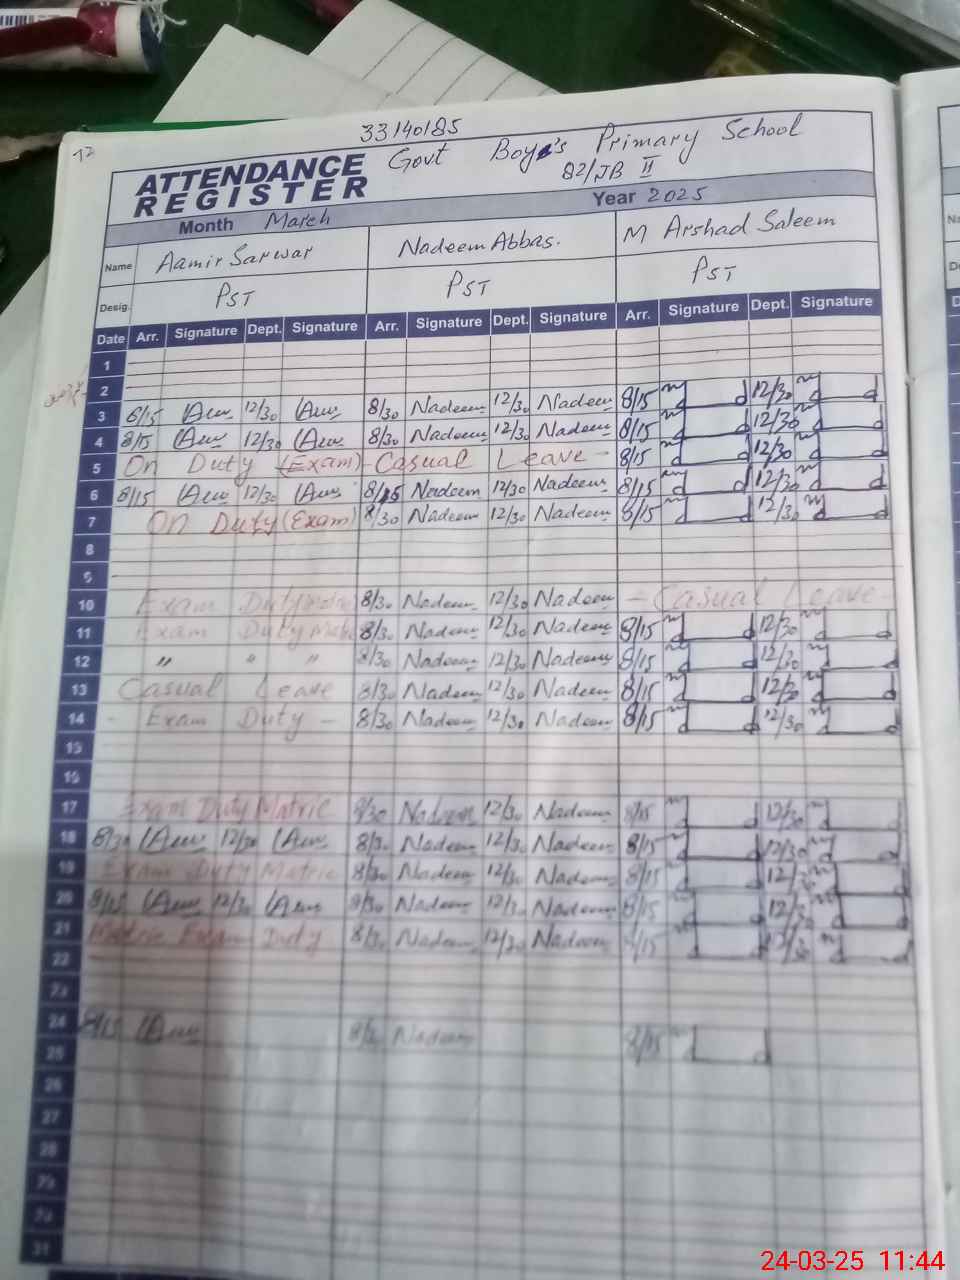 12
33140185
ATTENDANCE REGISTER
Govt Boys's Primary School
82/JB II
Month March Year 2025
Name Aamir Sarwar Nadeem Abbas. M Arshad Saleem
Desig. PST PST PST
Date Arr. Signature Dept. Signature Arr. Signature Dept. Signature Arr. Signature Dept. Signature
1
2
3 8/15 12/30 8/30 Nadeem 12/30 Nadeem 8/15 12/30
4 8/15 12/30 8/30 Nadeem 12/30 Nadeem 8/15 12/30
5 On Duty (Exam) - Casual Leave - 8/15 12/30
6 8/15 12/30 8/15 Nadeem 12/30 Nadeem 8/15 12/30
7 On Duty (Exam) 8/30 Nadeem 12/30 Nadeem 8/15 12/30
8
9
10 Exam Duty 8/30 Nadeem 12/30 Nadeem - Casual Leave -
11 Exam Duty 8/30 Nadeem 12/30 Nadeem 8/15 12/30
12 " " " 8/30 Nadeem 12/30 Nadeem 8/15 12/30
13 Casual Leave 8/30 Nadeem 12/30 Nadeem 8/15 12/30
14 - Exam Duty - 8/30 Nadeem 12/30 Nadeem 8/15 12/30
15
16
17 Exam Duty Matric 8/30 Nadeem 12/30 Nadeem 8/15 12/30
18 8/30 12/30 8/30 Nadeem 12/30 Nadeem 8/15 12/30
19 Exam Duty Matric 8/30 Nadeem 12/30 Nadeem 8/15 12/30
20 8/15 12/30 8/30 Nadeem 12/30 Nadeem 8/15 12/30
21 Matric Exam Duty 8/30 Nadeem 12/30 Nadeem 8/15 12/30
22
23
24 8/15 Nadeem 8/15
25
26
27
28
29
30
31
24-03-25 11:44